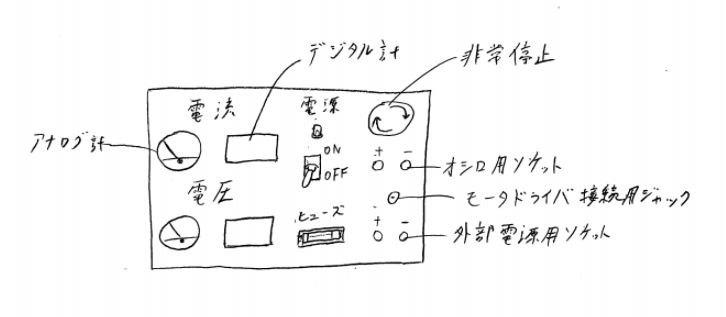 デジタル計
非常停止
電流
電源
アナログ計
ON
OFF
+ -
オシロ用ソケット
電圧
モータドライバ接続用ジャック
ヒューズ
+ -
外部電源用ソケット